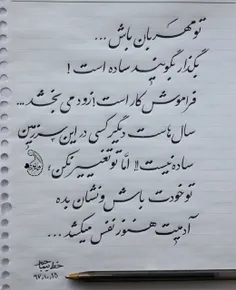 تو مهربان باش ...
بگذار بگویند ساده است !
فراموش کار است ! زود می بخشد ...
سال هاست دیگر کسی در این سرزمین
ساده نیست !! امّا تو تغییر نکن !
تو خودت باش و نشان بده
آدمیت هنوز نفس میکشد ...